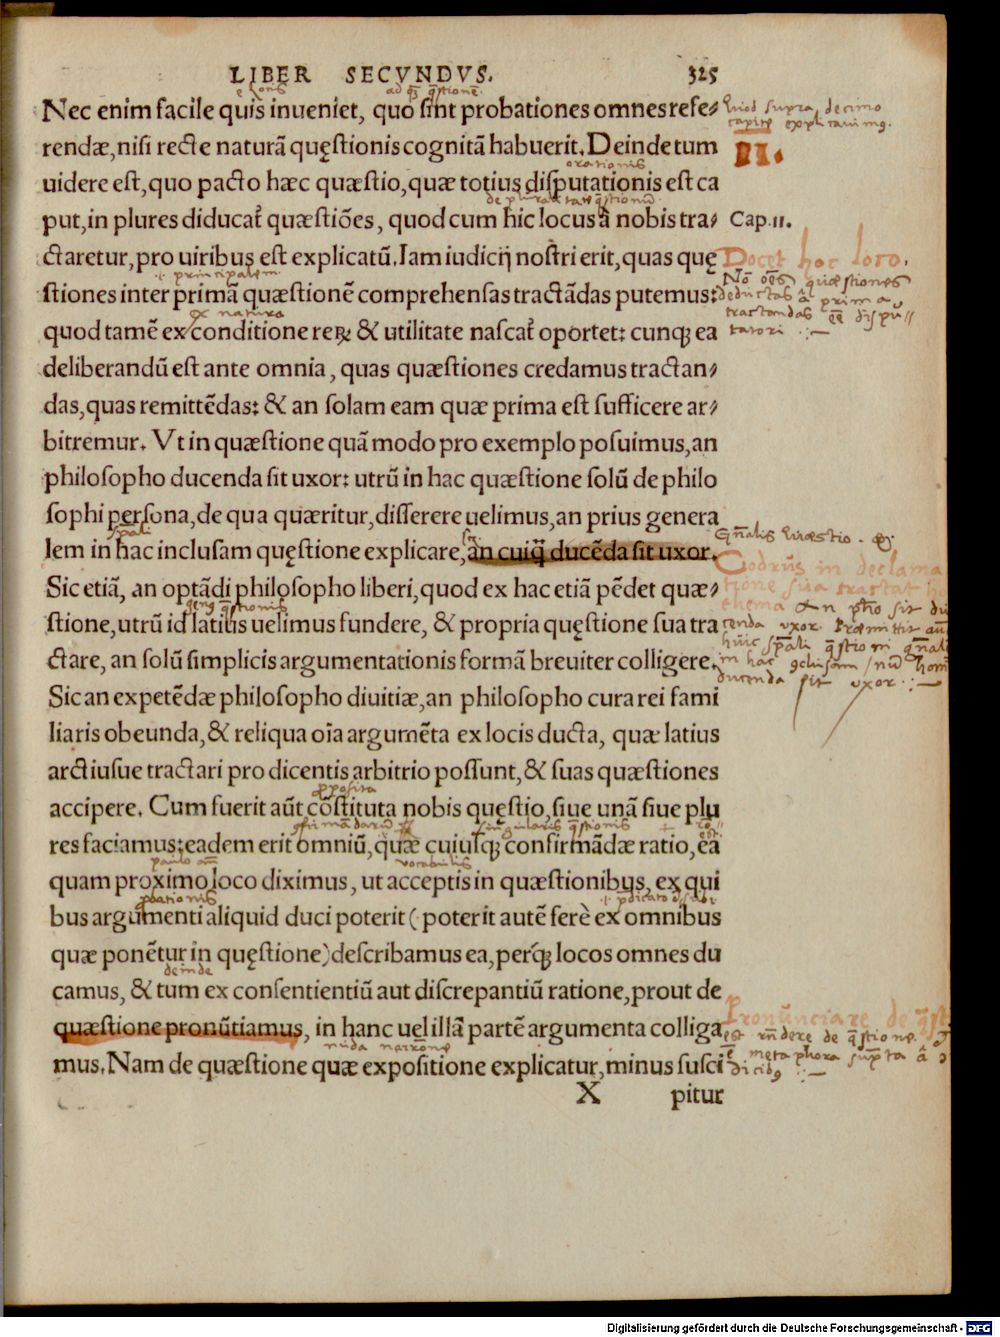 LIBER SECVNDVS. 325
Nec enim facile quis inueniet, quo sint probationes omnes refe⸗
rendæ, nisi recte naturã quęstionis cognitã habuerit. Deinde tum
uidere est, quo pacto hæc quæstio, quæ totius disputationis est ca
put, in plures diducat᷑ quæstiões, quod cum hic locus a nobis tra⸗
ctaretur, pro uiribus est explicatũ. Iam iudicij nostri erit, quas quę
stiones inter primã quæstionẽ comprehensas tractãdas putemus:
quod tamẽ ex conditione reꝝ & utilitate nascat᷑ oportet: cunq; ea
deliberandũ est ante omnia, quas quæstiones credamus tractan⸗
das, quas remittẽdas: & an solam eam quæ prima est sufficere ar⸗
bitremur. Vt in quæstione quã modo pro exemplo posuimus, an
philosopho ducenda sit uxor: utrũ in hac quæstione solũ de philo
sophi persona, de qua quæritur, disserere uelimus, an prius genera
lem in hac inclusam quęstione explicare, an cuiq̃ ducẽda sit uxor.
Sic etiã, an optãdi philosopho liberi, quod ex hac etiã pẽdet quæ⸗
stione, utrũ id latius uelimus fundere, & propria quęstione sua tra
ctare, an solũ simplicis argumentationis formã breuiter colligere.
Sic an expetẽdæ philosopho diuitiæ, an philosopho cura rei fami
liaris obeunda, & reliqua oĩa argumẽta ex locis ducta, quæ latius
arctiusue tractari pro dicentis arbitrio possunt, & suas quæstiones
accipere. Cum fuerit aũt cõstituta nobis quęstio, siue unã siue plu
res faciamus: eadem erit omniũ, quæ cuiusq; confirmãdæ ratio, ea
quam proximo loco diximus, ut acceptis in quæstionibus, ex qui
bus argumenti aliquid duci poterit (poterit autẽ ferè ex omnibus
quæ ponẽtur in quęstione) describamus ea, perq́; locos omnes du
camus, & tum ex consentientiũ aut discrepantiũ ratione, prout de
quæstione pronũtiamus, in hanc uel illã partẽ argumenta colliga
mus. Nam de quæstione quæ expositione explicatur, minus susci
X pitur
II.
Cap. 11.
Docet hoc loco.
Nõ oẽs quæstiones
deductas à prima
tractandas eẽ dispu⸗
tatori
Codrus in declama
tione sua tractat
Pronũnciare de
Digitalisierung gefördert durch die Deutsche Forschungsgemeinschaft - DFG